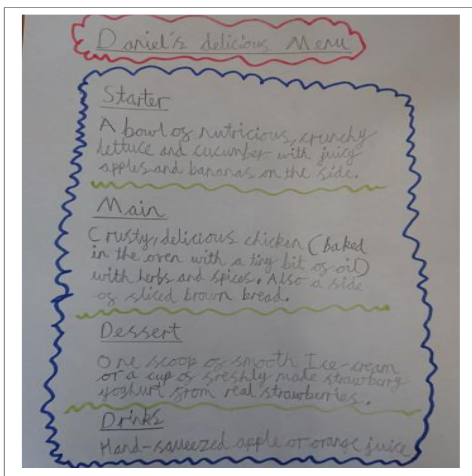 Daniel's delicious Menu
Starter
A bowl of nutricious, crunchy
lettuce and cucumber with juicy
apples and bananas on the side.
Main
Crusty, delicious chicken (baked
in the oven with a tiny bit of oil)
with herbs and spices. Also a side
of sliced brown bread.
Dessert
One scoop of smooth Ice-cream
or a cup of freshly made strawberry
yoghurt from real strawberries.
Drinks
Hand-squeezed apple or orange juice